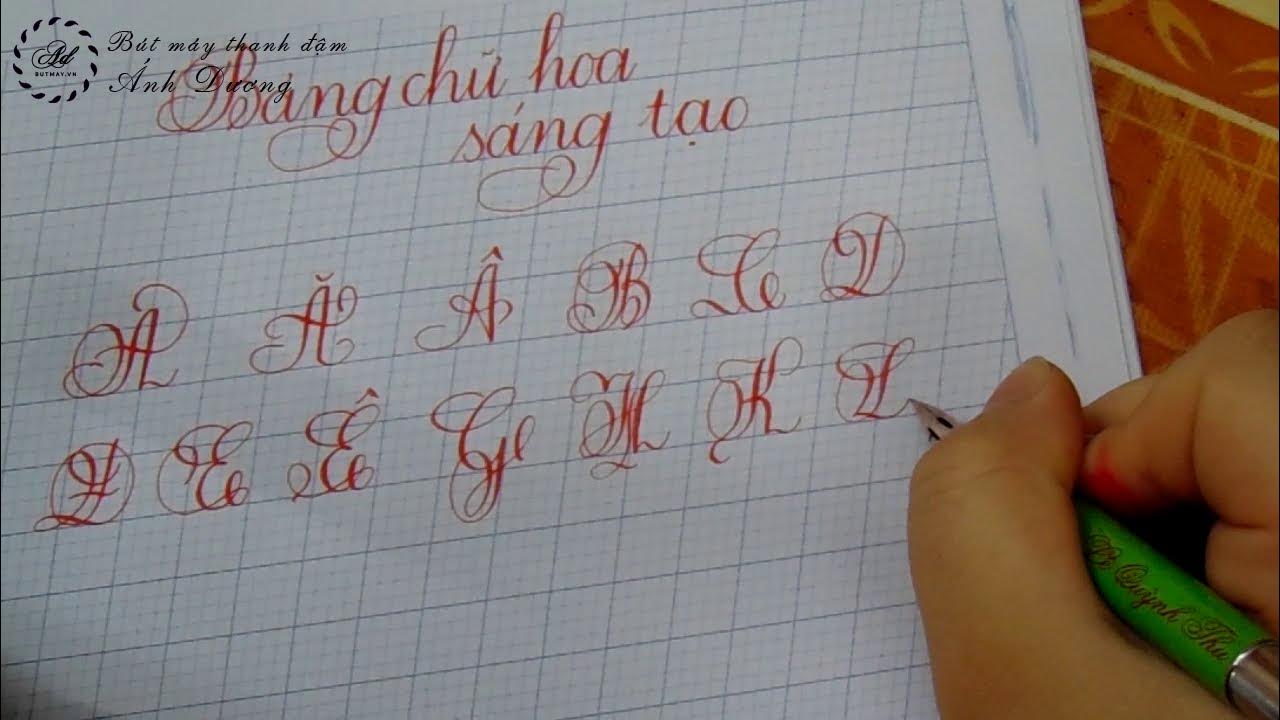 Bút máy thanh đậm
Ánh Dương
Ad
BUTMAY.VN
Bảng chữ hoa
sáng tạo
A Ă Â B C D
Đ E Ê G H K L
Bé Quỳnh Thư